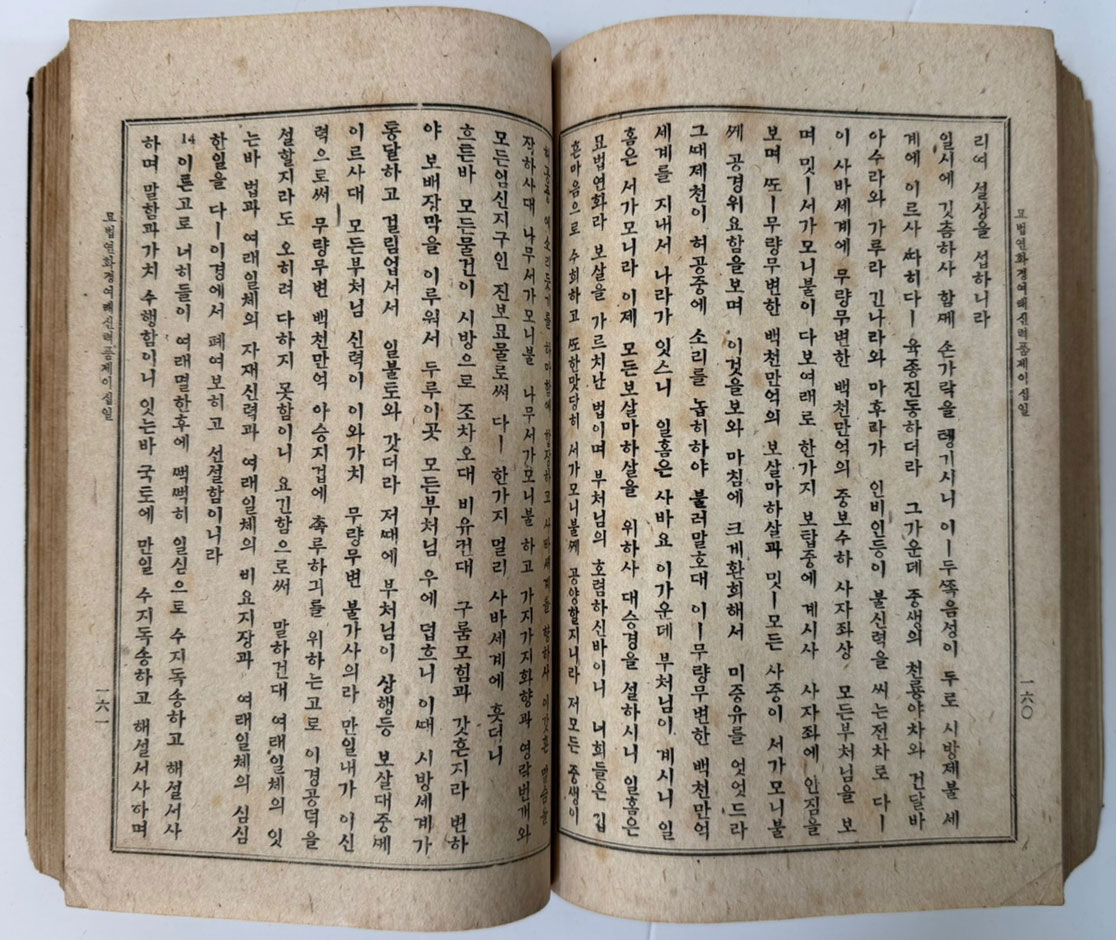 묘법연화경여래신력품제이십일
一六〇
리여 설상을 섭하니라
일시에 깃춤하사 함께 손가락을 튕기시니 이ㅣ두쪽음성이 두로 시방제불 세
계에 이르사 따히다ㅣ육종진동하더라 그가운데 중생의 천룡야차와 건달바
아수라와 가루라 긴나라와 마후라가 인비인등이 불신력을 씨는전차로 다ㅣ
이 사바세계에 무량무변한 백천만억의 중보수하 사자좌상 모든부처님을 보
며 밋ㅣ서가모니불이 다보여래로 한가지 보탑중에 계시사 사자좌에 안짐을
보며 또ㅣ무량무변한 백천만억의 보살마하살과 밋ㅣ모든 사중이 서가모니불
께 공경위요함을보며 이것을보와 마침에 크게환희해서 미중유를 엇엇드라
그때제천이 허공중에 소리를 놉히하야 불러말호대 이ㅣ무량무변한 백천만억
세계를 지내서 나라가 잇스니 일홈은 사바요 이가운데 부처님이 계시니 일
홈은 서가모니라 이제 모든보살마하살을 위하사 대승경을 설하시니 일홈은
묘법연화라 보살을 가르치난 법이며 부처님의 호렴하신바이니 너희들은 깁
흔마음으로 수희하고 또한맛당히 서가모니불께 공양할지니라 저모든 중생이
소리듯기를 합장하고 사바세계를 향하사
장하사대 나무서가모니불 나무서가모니불 하고 가지가지화향과 영락번개와
모든엄신지구인 진보묘물로써 다ㅣ 한가지 멀리 사바세계에 흣더니
흐튼바 모든물건이 시방으로 조차오대 비유컨대 구룸모힘과 갓흔지라 변하
야 보배장막을 이루워서 두루이곳 모든부처님 우에 덥흐니 이때 시방세계가
통달하고 걸림업서서 일불토와 갓더라 저때에 부처님이 상행등 보살대중께
이르사대 모든부처님 신력이 이와가치 무량무변 불가사의라 만일내가 이신
력으로써 무량무변 백천만억 아승지겁에 촉루하긔를 위하는고로 이경공덕을
설할지라도 오히려 다하지 못함이니 요긴함으로써 말하건대 여래일체의 잇
는바 법과 여래일체의 자재신력과 여래일체의 비요지장과 여래일체의 심심
한일을 다ㅣ이경에서 펴여보히고 선설함이니라
14 이른고로 너히들이 여래멸한후에 맥맥히 일심으로 수지독송하고 해설서사
하며 말함과가치 수행합이니 잇는바 국토에 만일 수지독송하고 해설서사하며
묘법연화경여래신력품제이십일
一六一